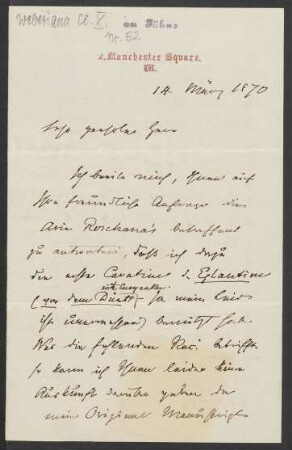 Weberiana Cl. X.
Nr. 52
2, Manchester Square,
W.
14 März 1870
Sehr geehrter Herr
Ich beeile mich, Ihnen auf
Ihre freundliche Anfrage die
Arie Roschana's betreffend
zu antworten, daß ich dazu
die erste Cavatine d. Eglantine
(vor dem Duett) in meinem
benützt habe.
Was die fehlenden Reci. betrifft
so kann ich Ihnen leider keine
Auskunft darüber geben da
mein Original Manuscript